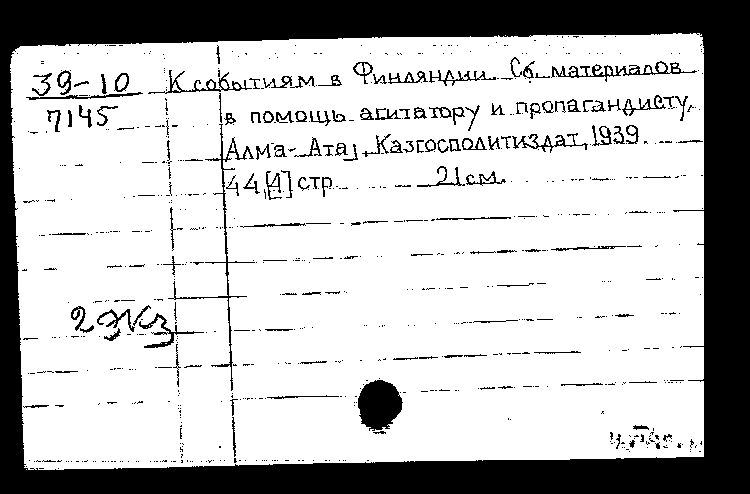 39-10
7145
К событиям в Финляндии. Сб. материалов
в помощь агитатору и пропагандисту.
Алма-Ата, Казгосполитиздат, 1939.
44,[4] стр. 21 см.
2 экз